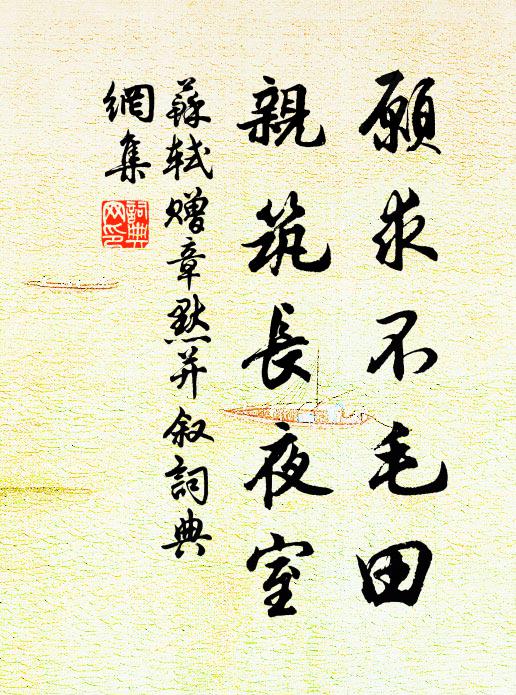 願求不毛田
親筑長夜室
蘇軾贈章默并叙詞典
網集
詞典
网印